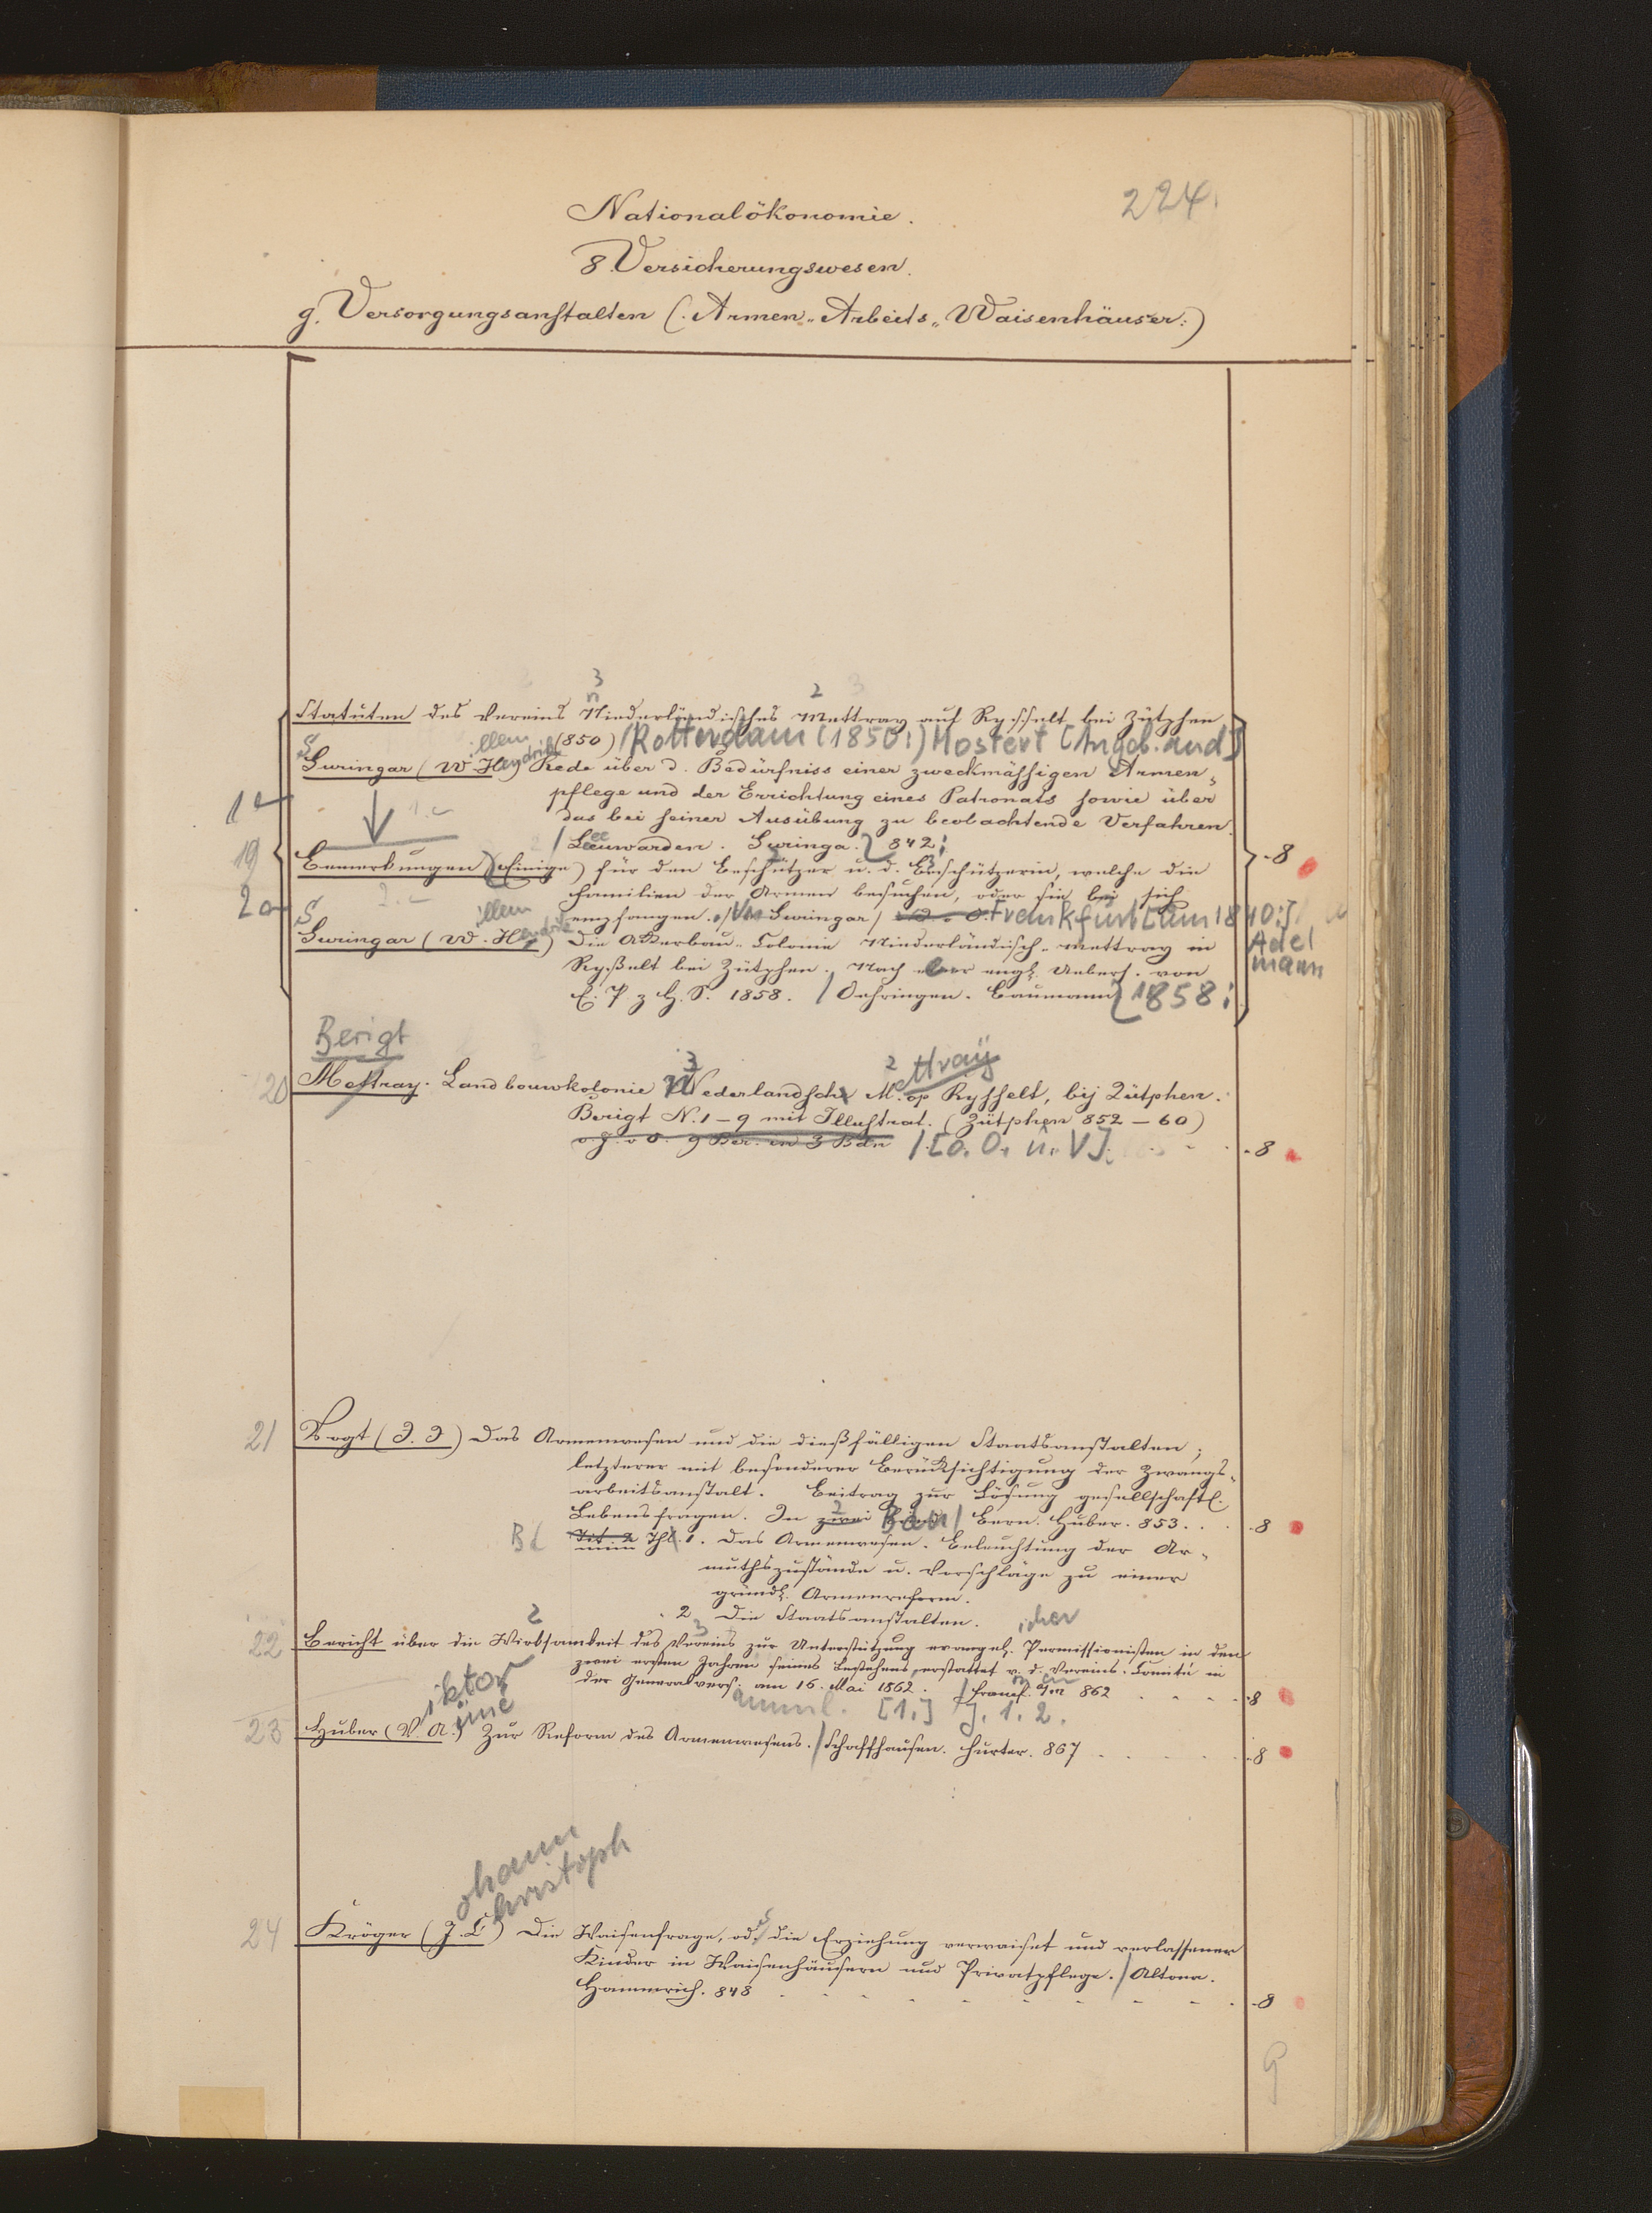 224.
Nationalökonomie.
8. Versicherungswesen.
g. Versorgungsanstalten (: Armen- Arbeits- Waisenhäuser:)
Statuten des Vereins Niederländisches Mettray auf Rysselt bei Zütphen
(850) / Rotterdam (1850:) Mostert [Angeb. and]
Suringar (Willem Hendrik) Rede über d. Bedürfniss einer zweckmässigen Armen-
pflege und der Errichtung eines Patronats sowie über
das bei seiner Ausübung zu beobachtende Verfahren.
/ Leeuwarden. Suringa. 842;
19 Bemerkungen (Einige) für den Beschützer u. d. Beschützerin, welche die
Familien der Armen besuchen, oder sie bei sich
empfangen. / Von Suringar / Frankfurt am 1840:] Adelmann
Suringar (Willem Hendrik) Die Akerbau-Colonie Niederländisch-Mettray in
Rysselt bei Zütphen. Nach der engl. Uebers. von
E. P z H. S. 1858. / Oehringen. Baumann 1858:
-8
Berigt
20 Mettray. Landbouwkolonie Nederlandsch Mettray op Rysselt, bij Zütphen.
Berigt N. 1-9 mit Illustrat. (Zütphen 852-60)
o. J. o O. 9 Ber. in 3 Bdn / [o. O. u. V]. -8
21 Vogt (J. J) Das Armenwesen und die dießfälligen Staatsanstalten;
letzterer mit besonderer Berücksichtigung der Zwangs-
arbeitsanstalt. Beitrag zur Lösung gesellschaftl.
Lebensfragen. In zwei 2 Bden / Bern. Huber. 853. . -8
Bd Thl. 1. Das Armenwesen. Beleuchtung der Ar-
muthszustände u. Vorschläge zu einer
gründl. Armenreform.
2 Die Staatsanstalten.
22 Bericht über die Wirksamkeit des Vereins zur Unterstützung evangel. Permissionisten in den
zwei ersten Jahren seines Bestehens, erstattet v. d. Vereins-Comité in
der Generalvers. am 16. Mai 1862. / Francf. a/m 862 . . . . -8
[1.] J. 1. 2.
23 Huber (Viktor Aimé) Zur Reform des Armenwesens. / Schaffhausen. Hurter. 867 . . . . . -8
24 Kröger (Johann Christoph) Die Waisenfrage, od. die Erziehung verwaiset und verlassener
Kinder in Waisenhäusern und Privatpflege. / Altona.
Hammerich. 848 . . . . . . . . -8
9